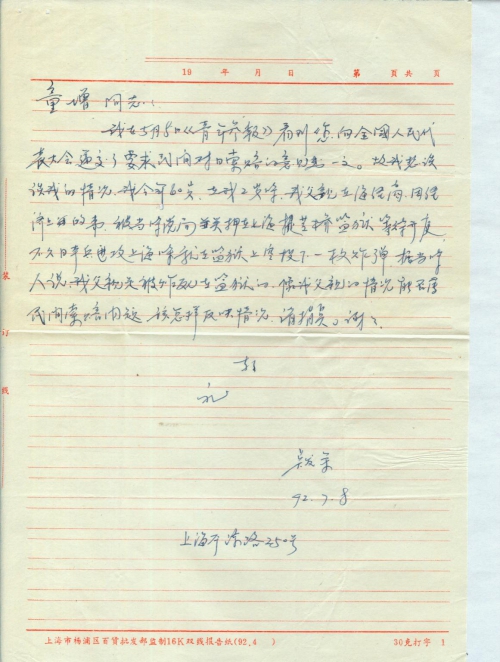 19 年 月 日 第 页共 页
童增同志：
我在5月5日《青年参报》看到您向全国人民代
表大会递交了要求民间对日索赔的意见书一文。故我想谈
谈我的情况，我今年60岁，在我2岁时，我父亲在上海经商，因经
济上的事，被当时法院关押在上海提篮桥监狱等待开庭，
不久日本兵进攻上海时就在监狱上空投下一枚炸弹，据当时
人说，我父亲是被炸死在监狱的，像我父亲的情况能否属
民间索赔问题，该怎样反映情况，请指点，谢谢
此
礼
92.7.8
上海平凉路250号
装
订
线
上海市杨浦区百货批发部监制16K双线报告纸(92.4 ) 30克打字 1